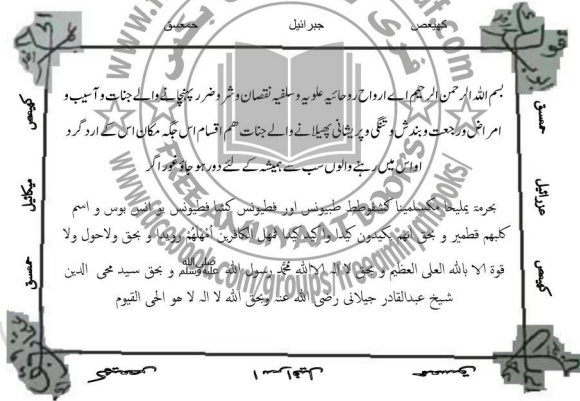 کھیعص جبرائیل حمعسق
بسم اللہ الرحمن الرحیم اے ارواح روحانیہ علویہ وسلفیہ نقصان وشر وضرر پہنچانے والے جنات و آسیب و
امراض ورجعت وبندش و تنگی وپریشانی پھیلانے والے جنات ھم اقسام اس جگہ مکان اس کے ارد گرد
اواس میں رہنے والوں سب سے ہمیشہ کے لئے دور ہوجاؤ غورا گر
بحرمۃ یملیخا مکسلمینا کشفوطط طبیونس اور فطیونس کشا فطیونس یوانس بوس و اسم
کلبھم قطمیر و بحق انھم یکیدون کیدا واکید کیدا فمھل الکافرین أمھلھُم رویدا و بحق ولاحول ولا
قوة الا باللہ العلی العظیم و بحق لا الہ الااللہ محمد رسول اللہ ﷺ و بحق سید محی الدین
شیخ عبدالقادر جیلانی رضی اللہ عنہ وبحق اللہ لا الہ لا ھو الحی القیوم
حمسق
عزرائیل
کھیعص
کھیعص
میکائیل
حمسق
کھیعص اسرافیل حمعسق
FREE AMLIYAAT BOOKS